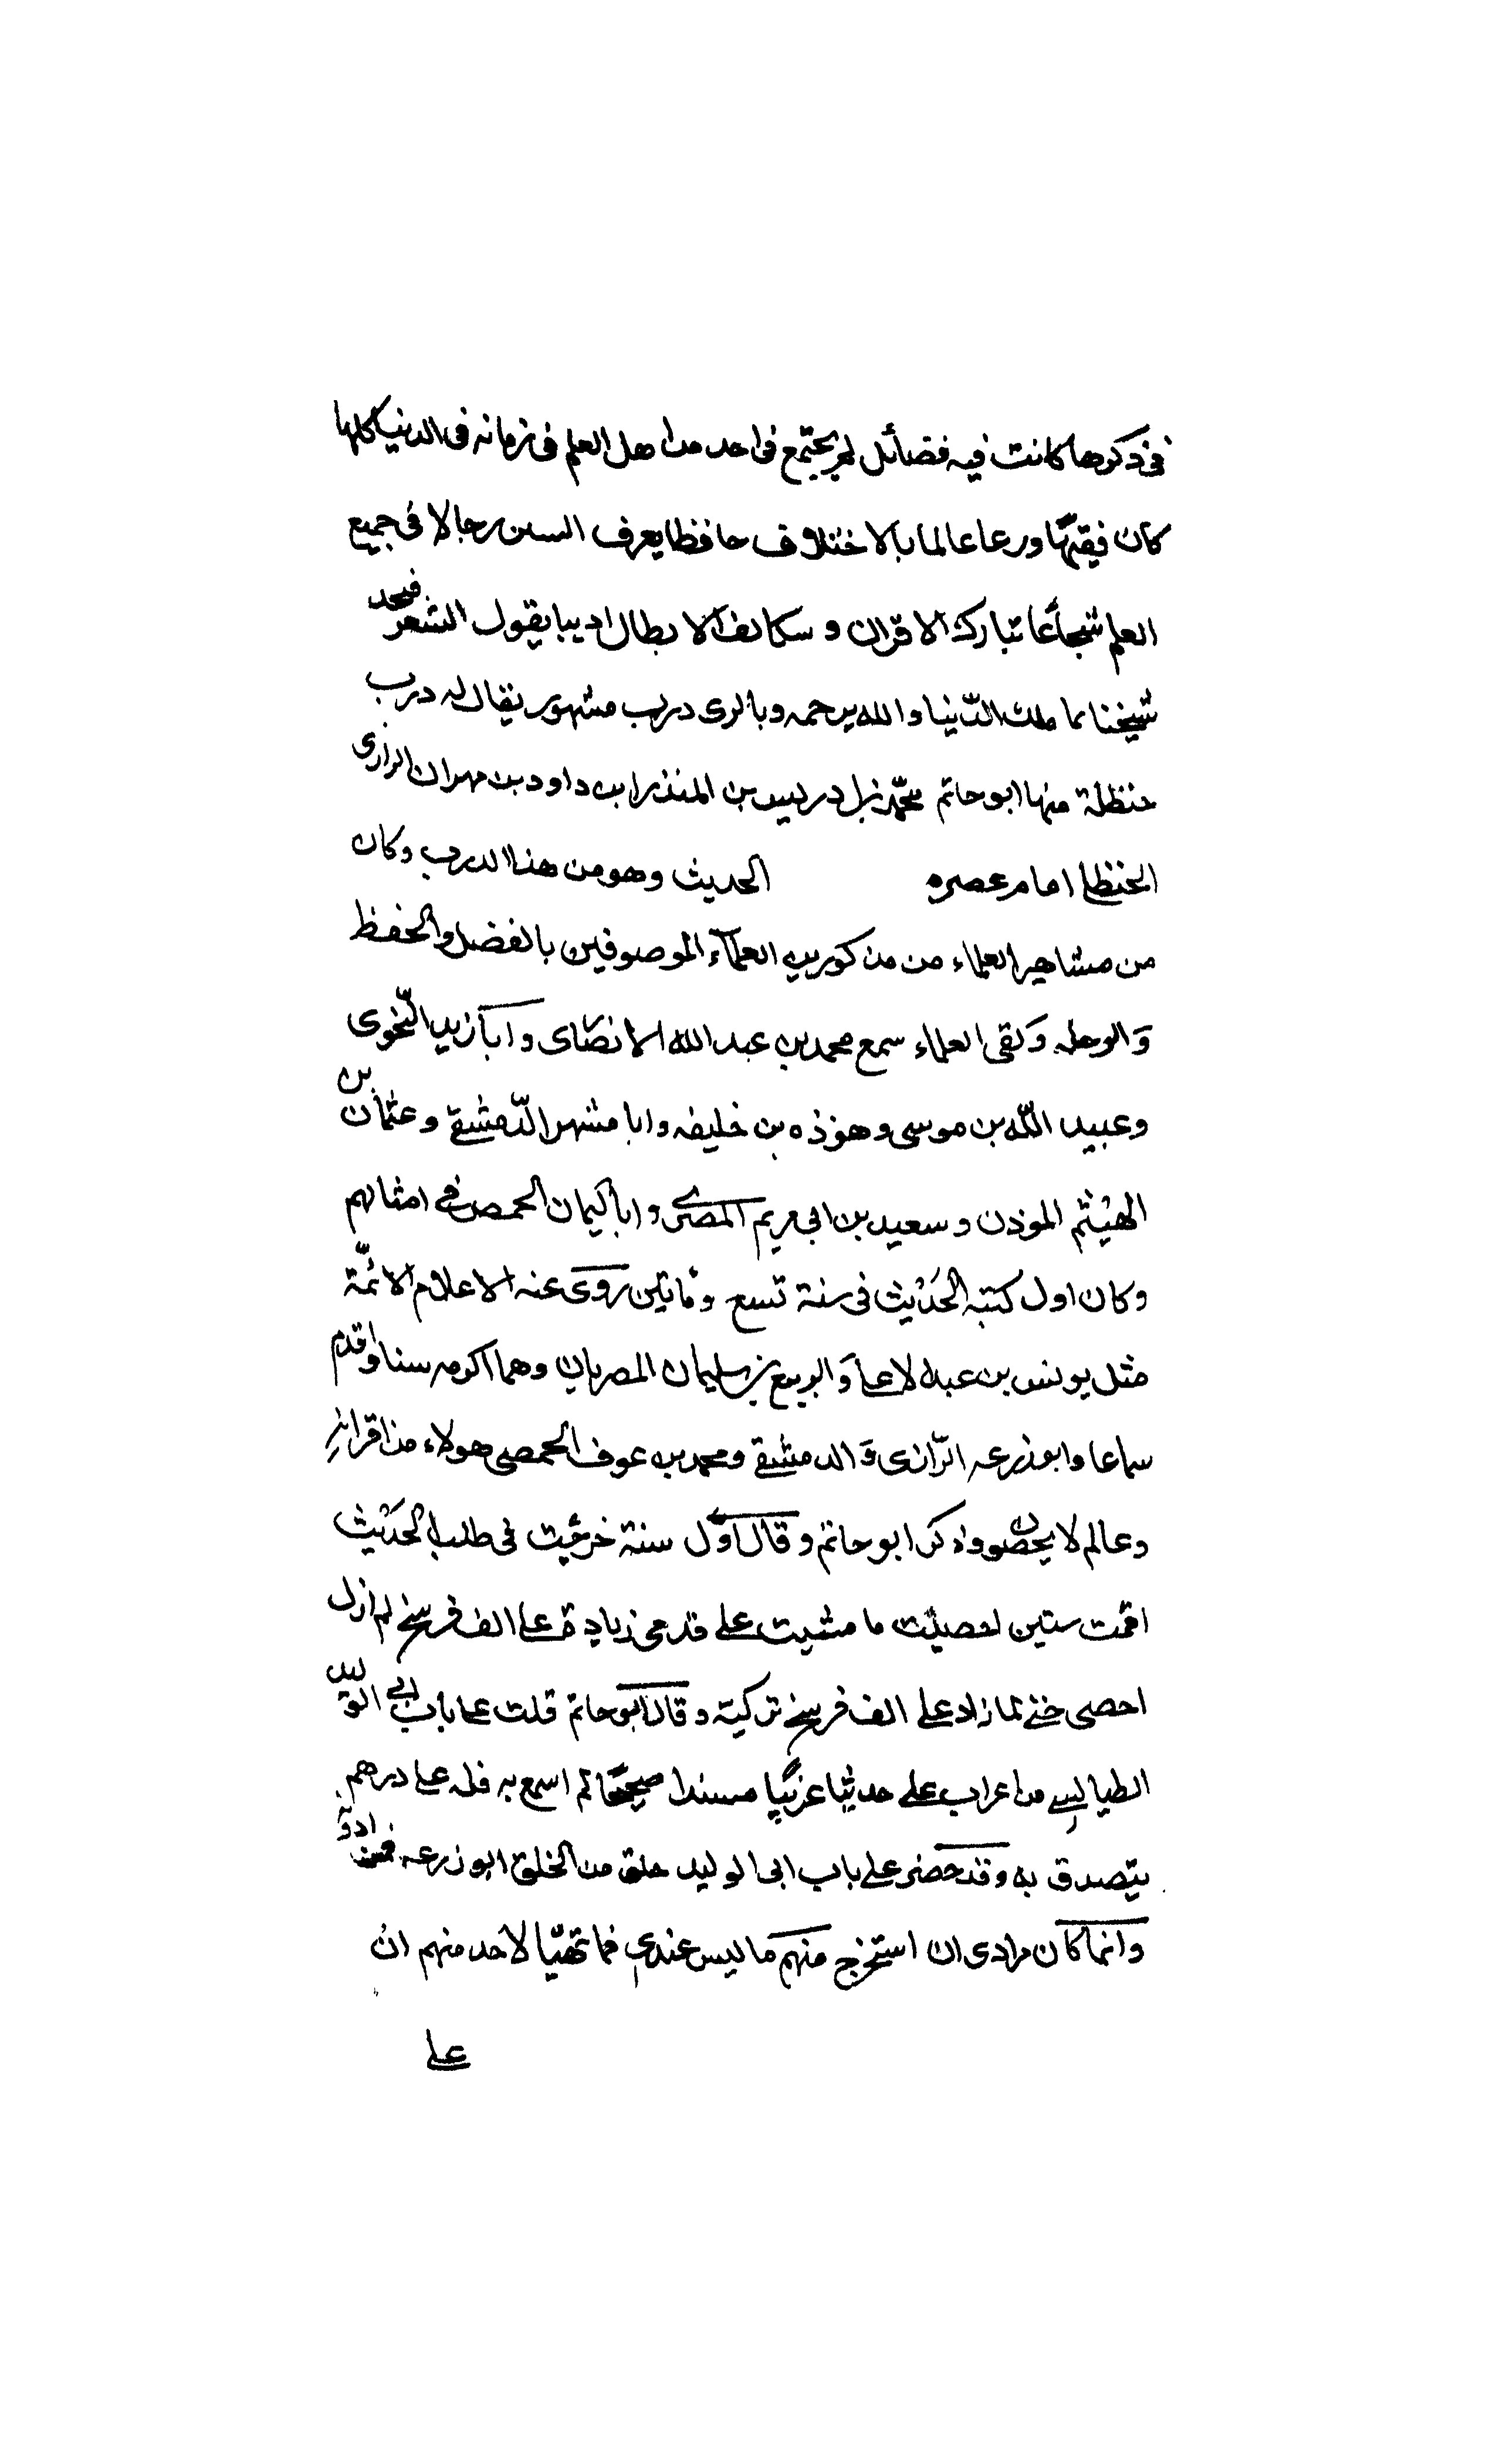 في ذكرها كانت فيه فضائل لم يجتمع في احد من اهل العلم في زمانه في الدنيا كلها
كان فقيها ورعا عالما بالاختلاف حافظا يعرف السنن رجالا في جميع
العلم شجاعا تبارك الاقران و الابطال اديبا يقول الشعر فيجد
شيخنا بما ملك الدنيا والله يرحمه وبالرى درب مشهور يقال له درب
حنظلة منها ابو حاتم محمد بن ادريس بن المنذر ابن داود بن مهران الرازى
الحنظلي امام عصره الحديث وهو من هذا الدرب وكان
من مشاهير العلماء من مذكورين العلماء الموصوفين بالفضل والحفظ
والرحله ولقى العلماء سمع محمد بن عبد الله الانصاى وابا زيد النحوى
وعبيد الله بن موسى وهوذه بن خليفه وابا مشهر الدمشقي وعثمان بن
الهيثم الموذن وسعيد بن ابي مريم المصرى وابا اليمان الحمصى في امثالهم
وكان اول كتبه الحديث في سنة تسع ومايتين روى عنه الاعلام الائمة
مثل يونس بن عبد الاعلى والربيع بن سليمان المصريان وهما اكبر منه سنا واقدم
سماعا وابو زرعه الرازى والدمشقي ومحمد بن عوف الحمصى هولاء من اقرانه
وعالم لا يحصون وذكر ابو حاتم وقال اول سنة خرجت في طلب الحديث
اقمت سنين احصيت ما مشيت على قدمى زيادة على الف فرسخ لم ازل
احصى حتى لما زاد على الف فرسخ تركته وقال ابو حاتم قلت على باب ابي الوليد
الطيالسي من اغرب علي حديثا غريبا مسندا صحيحا لم اسمع به فله على درهم
يتصدق به وقد حضر على باب ابى الوليد خلق من الخلق ابو زرعه فمن دونه
وانما كان مرادى ان استخرج منهم ما ليس عندي فما تهيا لاحد منهم ان
على